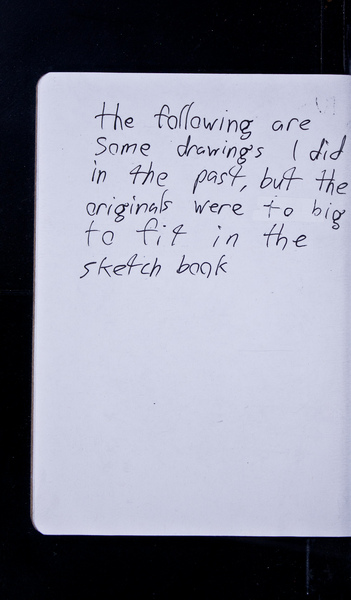 the following are
some drawings I did
in the past, but the
originals were to big
to fit in the
sketch book